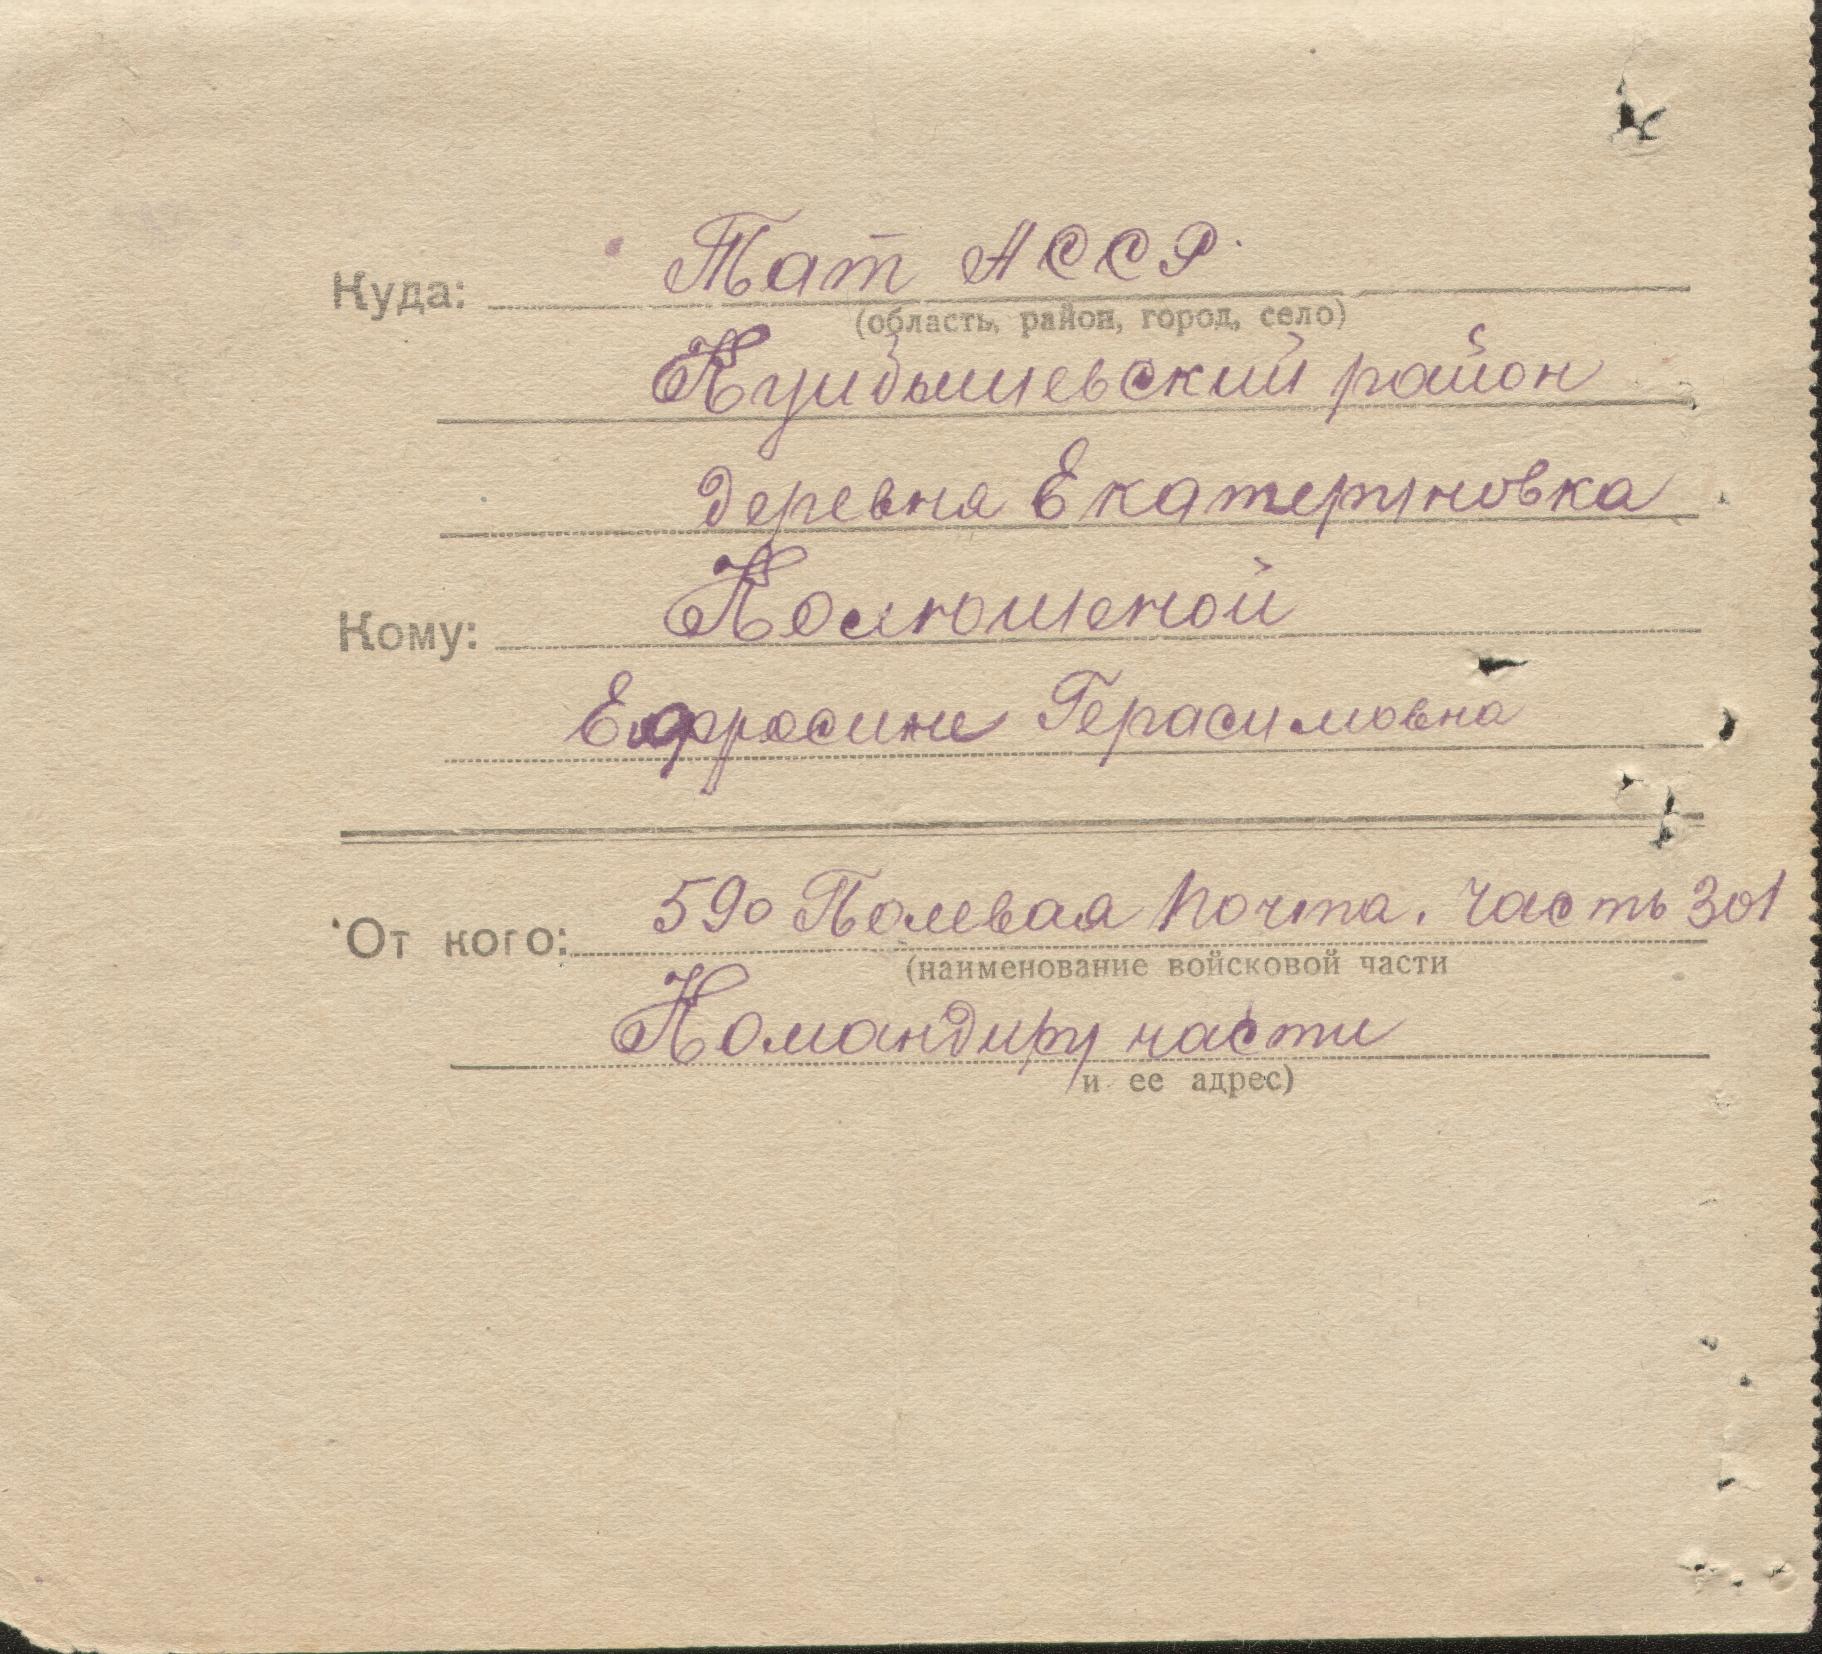 Тат АССР.
Куда:
(область, район, город, село)
Куйбышевский район
деревня Екатериновка
Кому: Колюшеной
Ефросине Герасимовна
От кого: 590 Полевая Почта. Часть 301
(наименование войсковой части
Командиру части
и ее адрес)